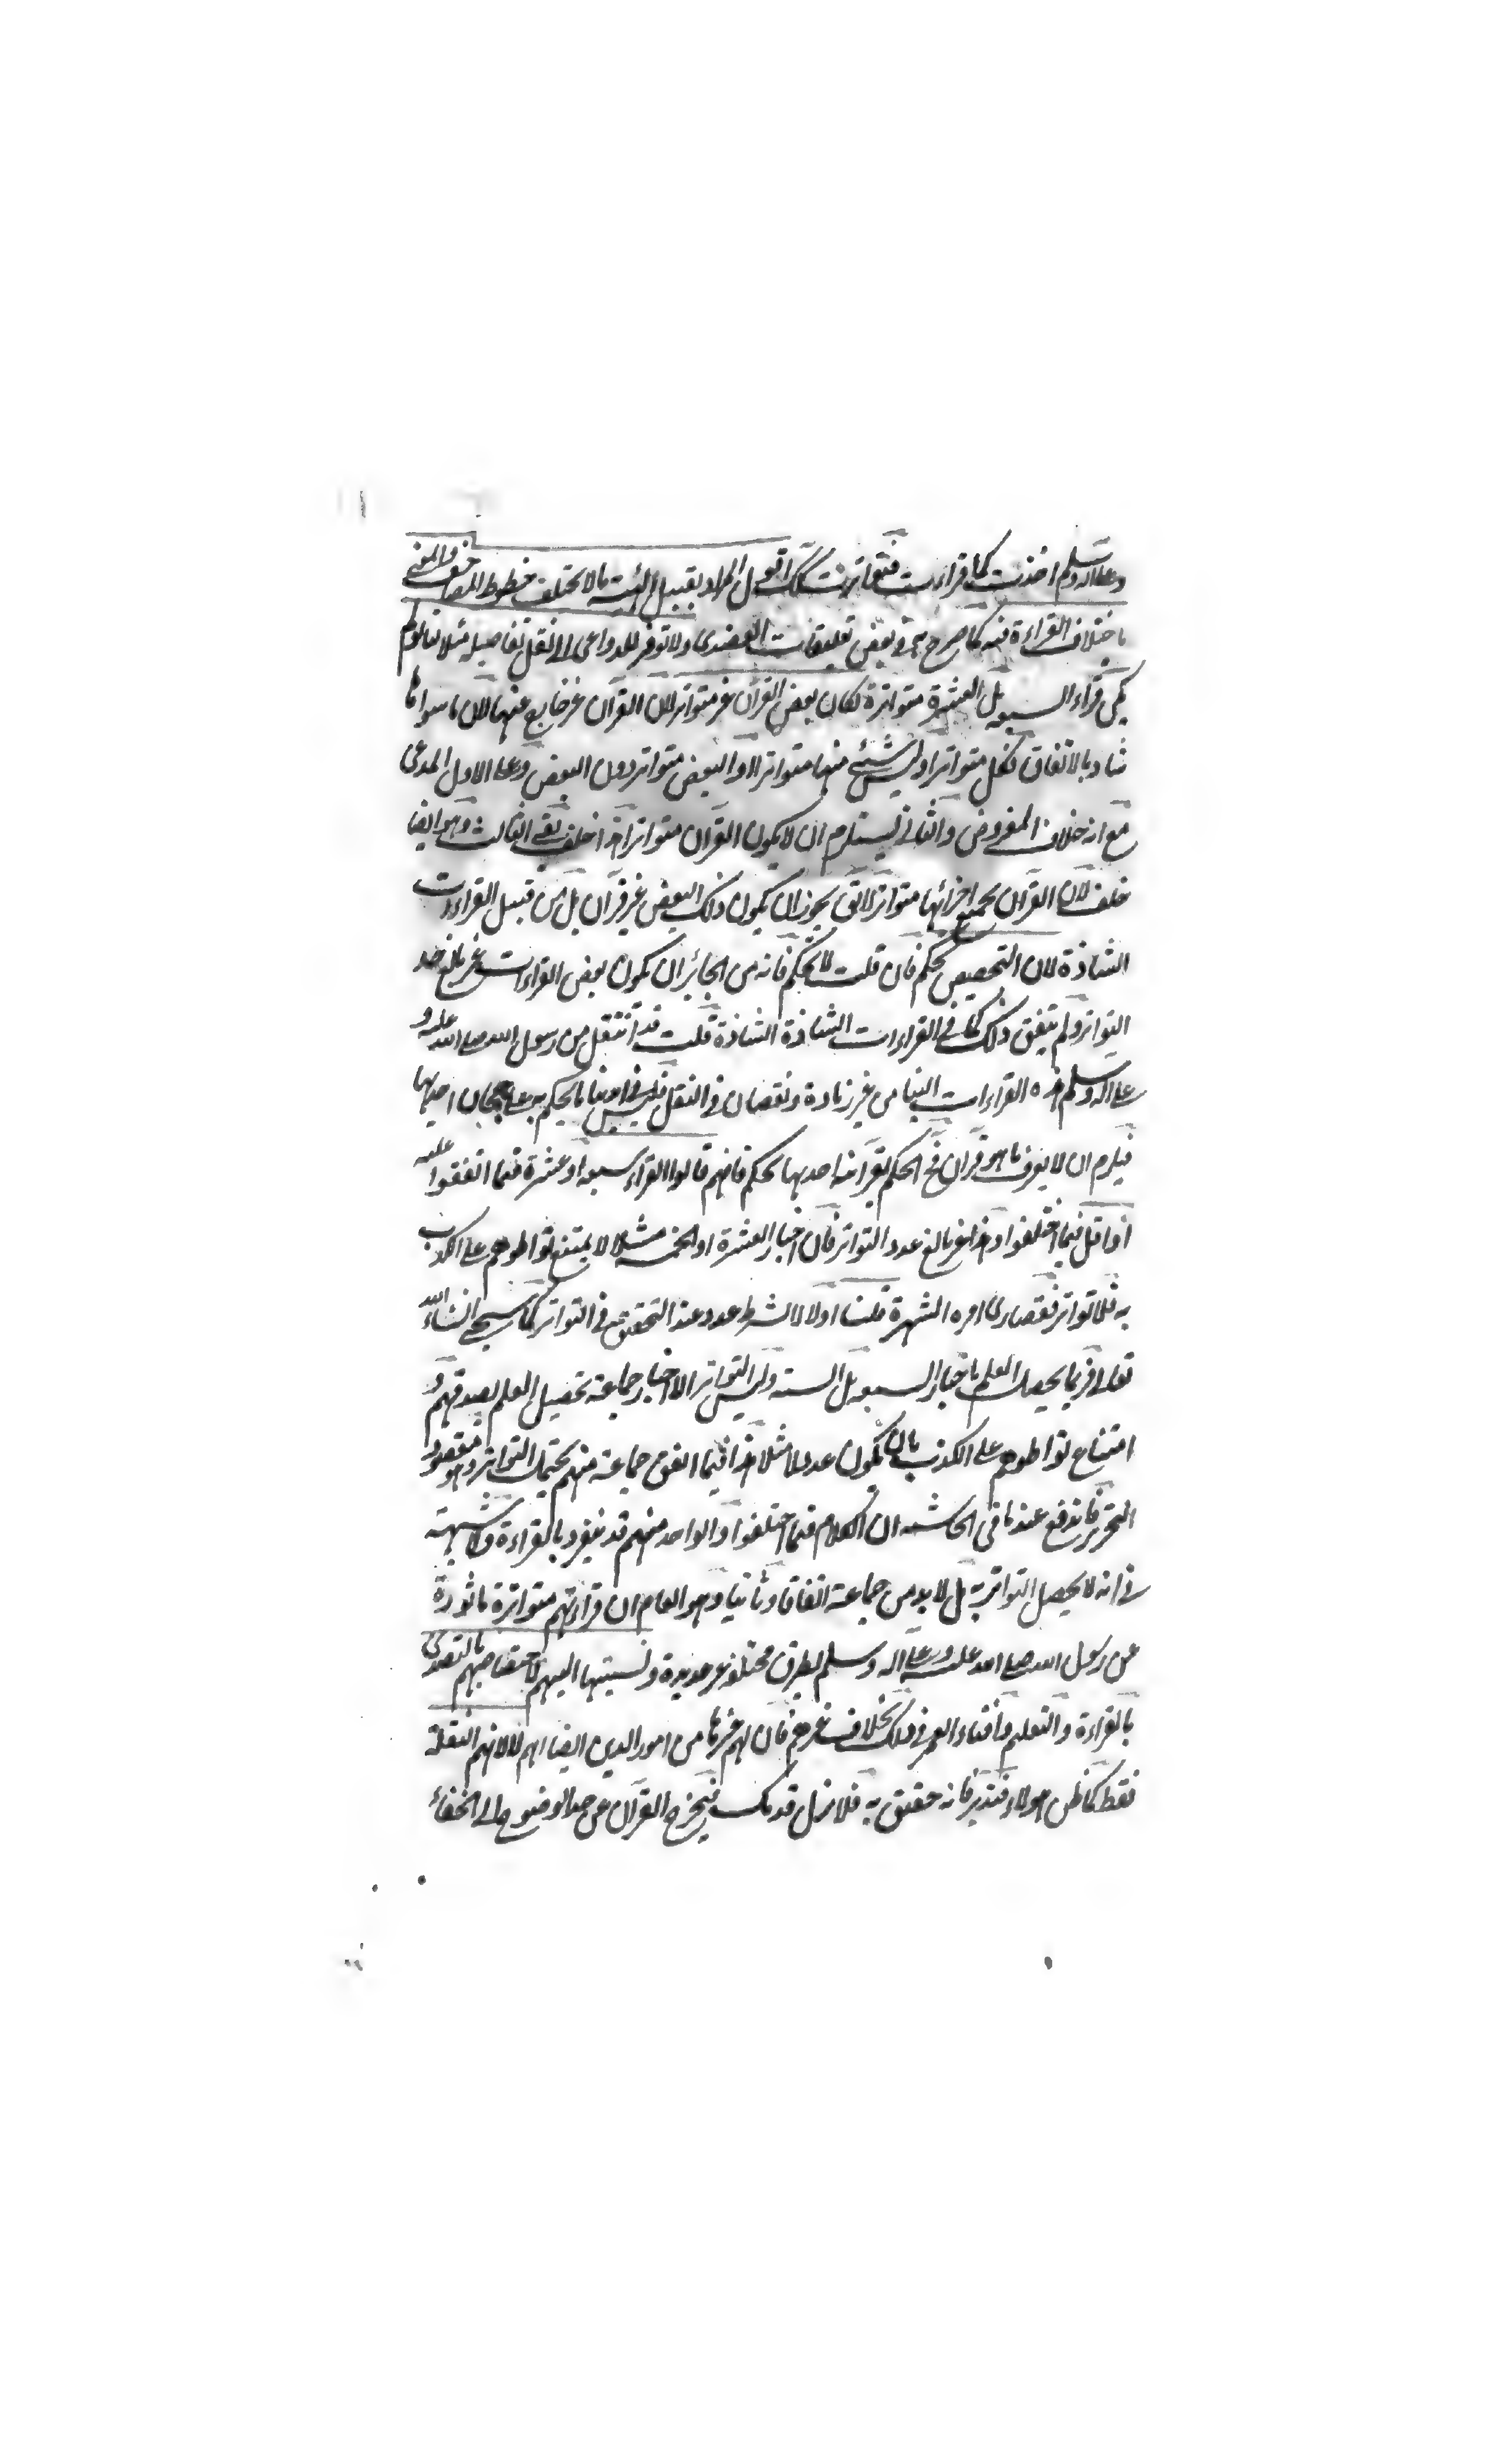 وعلى اله وسلم اخذت كما قرأت فتواترت كذلك اقول المراد بقبيل الهيئة ما لا يختلف خطوط المصاحف والمعنى
باختلاف القراءة فيه كما صرح به في بعض تعليقات العضدي ولا توفر للدواعي الى نقل تفاصيله مثلا لنا لو لم
يكن قراء السبعة بل العشرة متواترة لكان بعض القرآن غير متواتر لان القرآن غير خارج عنها لان ما سواها
شاذ بالاتفاق فكل متواتر او ليس شئ منها متواترا او البعض متواتر دون البعض وعلى الاول المدعى
مع انه خلاف المفروض والثاني يستلزم ان لا يكون القرآن متواترا هذا خلف بقي الثالث وهو ايضا
خلف لان القرآن بجميع اجزائها متواتر لا يقال يجوز ان يكون ذلك البعض غير قرآن بل من قبيل القراءات
الشاذة لان التخصيص تحكم فان قلت لا تحكم فانه من الجائز ان يكون بعض القراءات غير بالغ حد
التواتر ولم يتفق ذلك كما في القراءات الشاذة الشاذة قلت قد انتقل من رسول الله صلى الله عليه و
على اله وسلم هذه القراءات الينا من غير زيادة ونقصان في النقل فليس في ايدينا ما يحكم به على رجحان احديها
فيلزم ان لا يعرف ما هو قرآن فح الحكم بقرآنية احديها تحكم فانهم قالوا القراء سبعة او عشرة فيما اتفقوا عليه
او اقل فيما اختلفوا وهذا غير بالغ عدد التواتر فان اخبار العشرة او الخمسة مثلا لا يمتنع تواطؤهم على الكذب
به فلا تواتر فقصارى امره الشهرة قلنا اولا لا شرط عدد عند التحقيق في التواتر كما سيجئ انشاء الله
تعالى فربما يحصل العلم باخبار السبعة بل الستة وليس التواتر الا اخبار جماعة تحصيل العلم بصدقهم و
امتناع تواطؤهم على الكذب بان يكون عدولا مثلا هذا فيما اتفق جماعة منهم يحتمل التواتر وهو مقصود
التحرير فاندفع عنه ما في الحاشية ان الكلام فيما اختلفوا والواحد منهم قد ينفرد بالقراءة ولا شبهة
في انه لا يحصل التواتر به بل لا بد من جماعة اتفاقا وثانيا وهو العام ان قراءتهم متواترة ماثورة
عن رسول الله صلى الله عليه وعلى اله وسلم بطرق مختلفة غير عديدة ونسبتها اليهم لاختصاصهم بالتصدى
بالقراءة والتعليم وافناء العمر في ذلك بخلاف غيرهم فان لهم غيرها من امور الدين ايضا اهم لا لانهم النقلة
فقط كما ظن هؤلاء فتدبر فانه حقيق به فلا تزل قدمك فيخرج القرآن عن حد الوضوح الى الخفاء